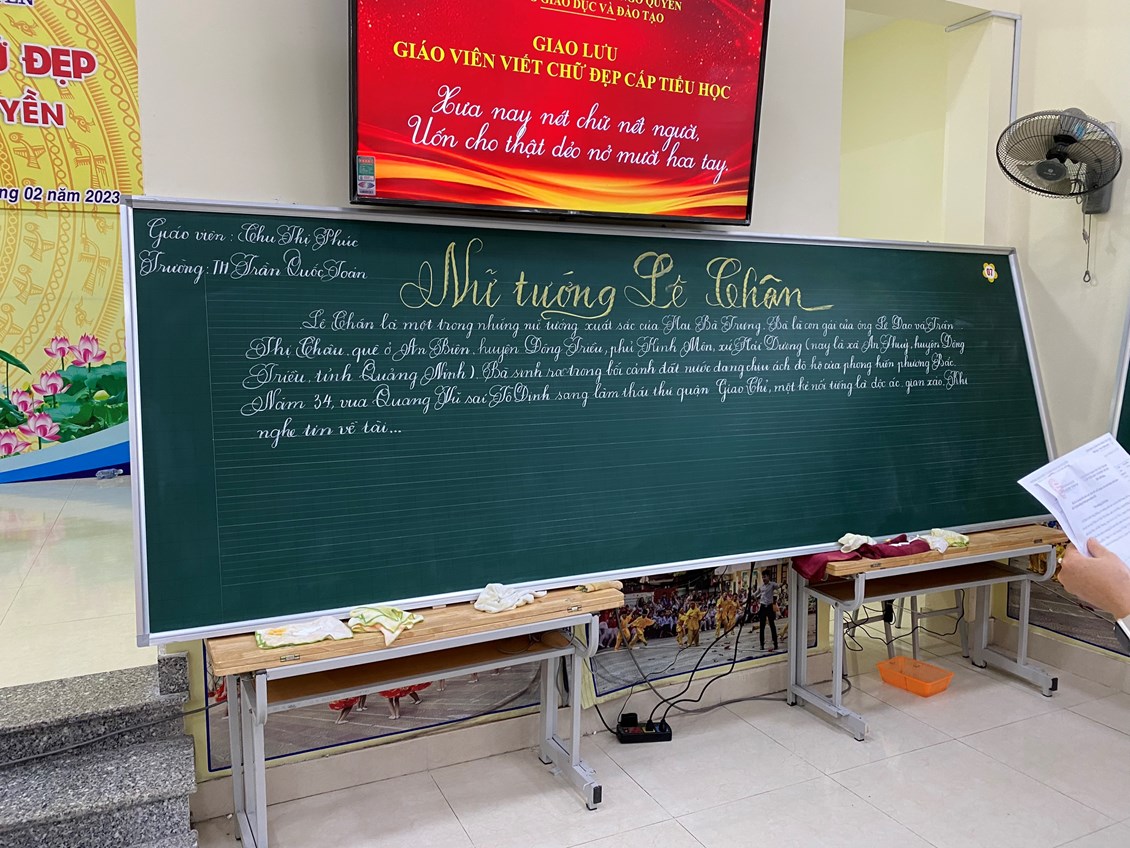 Ữ ĐẸP
YỀN
ng 02 năm 2023
NGÔ QUYỀN
GIÁO DỤC VÀ ĐÀO TẠO
GIAO LƯU
GIÁO VIÊN VIẾT CHỮ ĐẸP CẤP TIỂU HỌC
Xưa nay nét chữ nết người,
Uốn cho thật dẻo nở mười hoa tay.
Giáo viên : Chu Thị Phúc
Trường : TH Trần Quốc Toản
07
Nữ tướng Lê Chân
Lê Chân là một trong những nữ tướng xuất sắc của Hai Bà Trưng. Bà là con gái của ông Lê Đạo và Trần
Thị Châu, quê ở An Biên, huyện Đông Triều, phủ Kinh Môn, xứ Hải Dương (nay là xã An Thuỷ, huyện Đông
Triều, tỉnh Quảng Ninh). Bà sinh ra trong bối cảnh đất nước đang chịu ách đô hộ của phong kiến phương Bắc.
Năm 34, vua Quang Vũ sai Tô Định sang làm thái thú quận Giao Chỉ, một kẻ nổi tiếng là độc ác, gian xảo. Khi
nghe tin về tài...